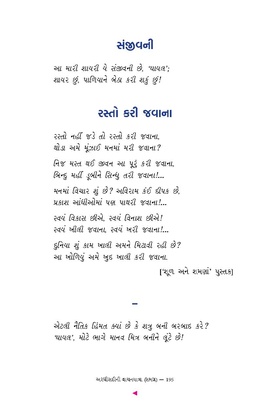 સંજીવની
આ મારી શાયરી યે સંજીવની છે, 'ઘાયલ';
શાયર છું, પાળિયાને બેઠા કરી શકું છું!
રસ્તો કરી જવાના
રસ્તો નહીં જડે તો રસ્તો કરી જવાના,
થોડા અમે મૂંઝાઈ મનમાં મરી જવાના?
નિજ મસ્ત થઈ જીવન આ પૂરું કરી જવાના,
બિન્દુ મહીં ડૂબીને સિન્ધુ તરી જવાના!...
મનમાં વિચાર શું છે? અવિરામ કંઈ દીપક છે.
પ્રકાશ આંધીઓમાં પણ પાથરી જવાના!...
સ્વયં વિકાસ છીએ, સ્વયં વિનાશ છીએ!
સ્વયં ખીલી જવાના, સ્વયં ખરી જવાના!...
દુનિયા શું કામ ખાલી અમને મિટાવી રહી છે?
આ ખોળિયું અમે ખુદ ખાલી કરી જવાના.
['શૂળ અને શમણાં' પુસ્તક]
–
એટલી નૈતિક હિંમત ક્યાં છે કે શત્રુ બની બરબાદ કરે?
'ઘાયલ', મોટે ભાગે માનવ મિત્ર બનીને લૂંટે છે!
— 195